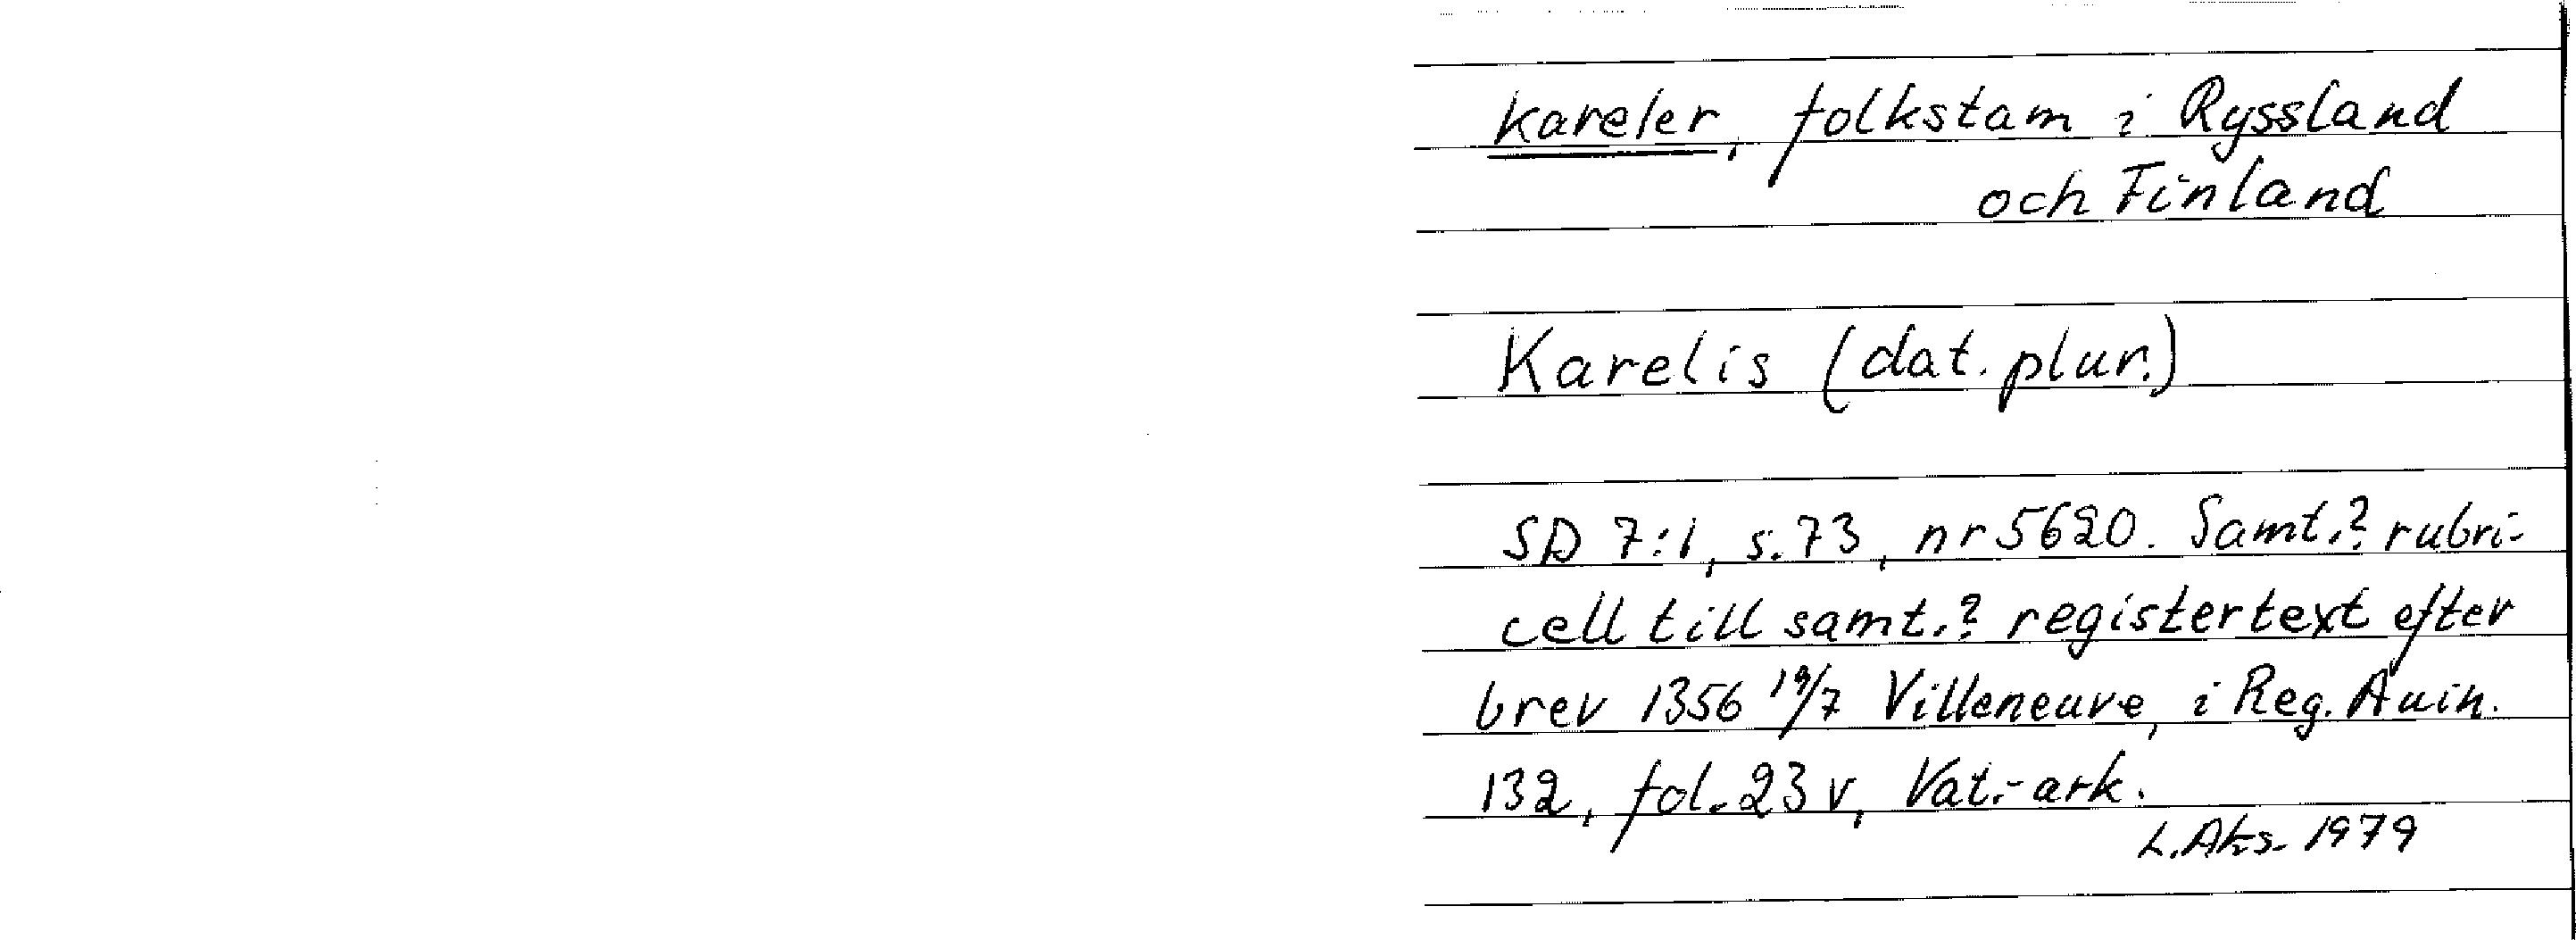 kareler, folkstam i Ryssland
och Finland
Karelis (dat. plur.)
SD 7:1, s. 73, nr 5620. Samt.? rubri-
cell till samt.? registertext efter
brev 1356 19/7 Villeneuve, i Reg. Auin.
132, fol. 23 v, Vat.-ark.
L. Aks. 1979